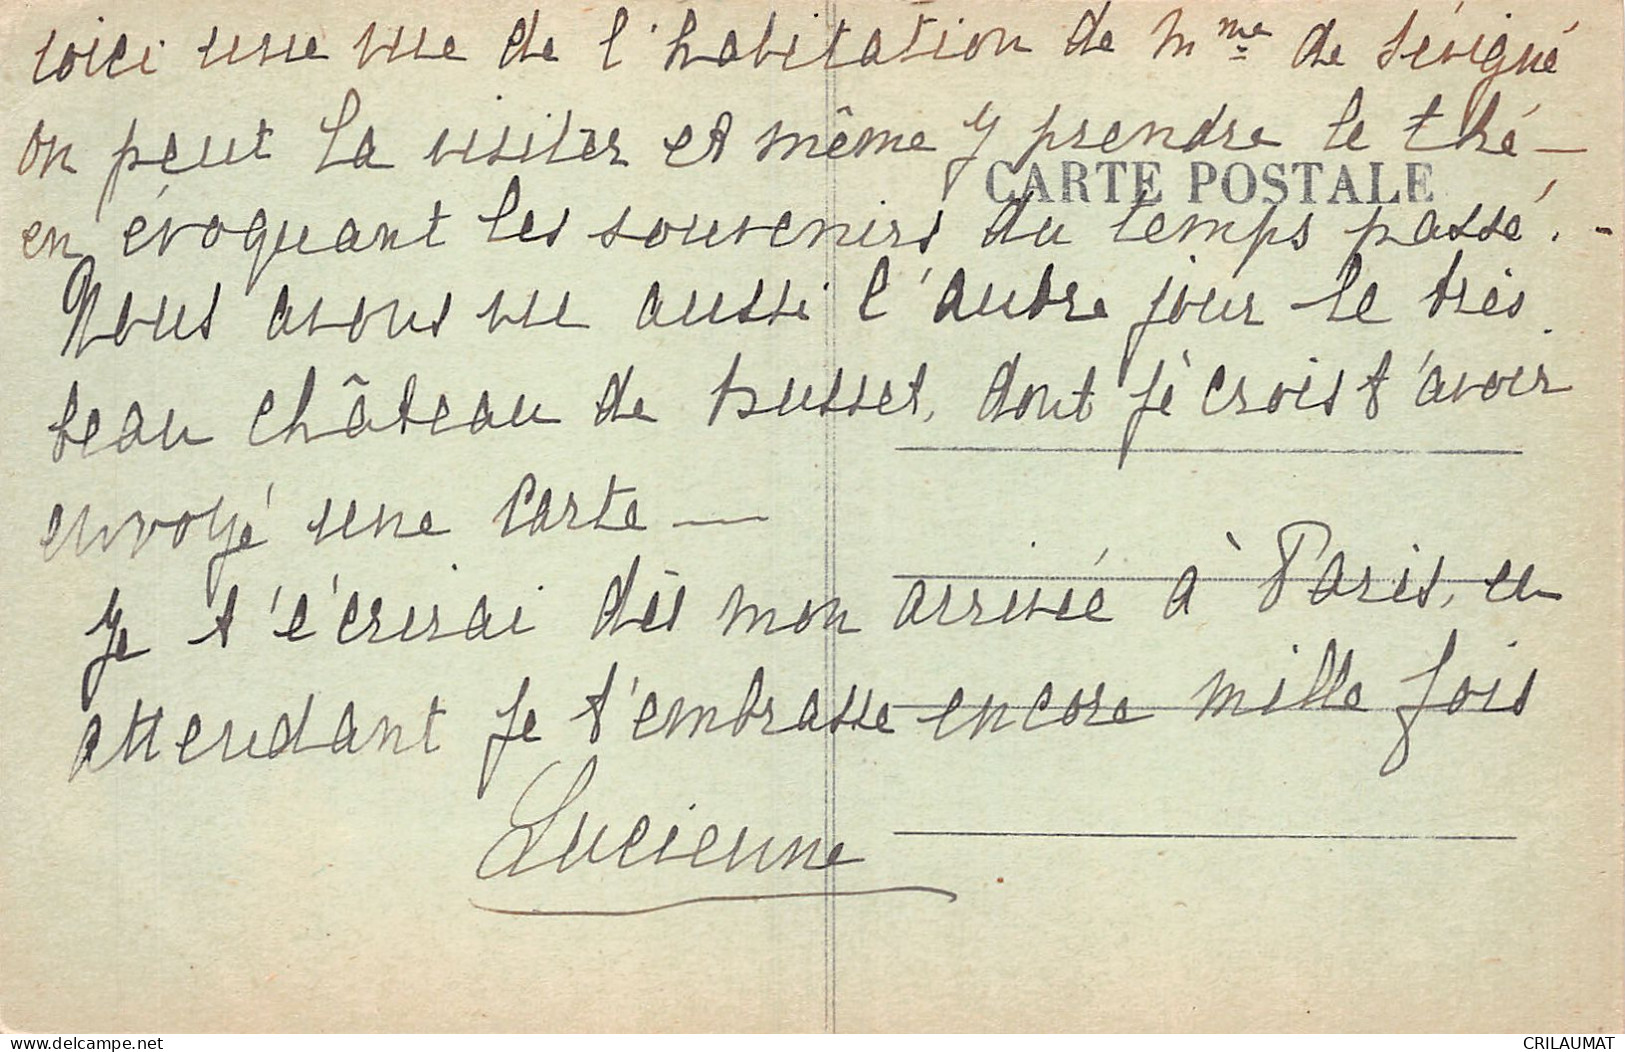 voici une vue de l'habitation de Mme de Sévigné
on peut la visiter et même y prendre le thé —
CARTE POSTALE
en évoquant les souvenirs du temps passé. -
Nous avons vu aussi l'autre jour le très
beau château de busset, dont je crois t'avoir
envoyé une carte —
Je t'écrirai dès mon arrivée à Paris, en
attendant je t'embrasse encore mille fois
Lucienne
www.delcampe.net
CRILAUMAT